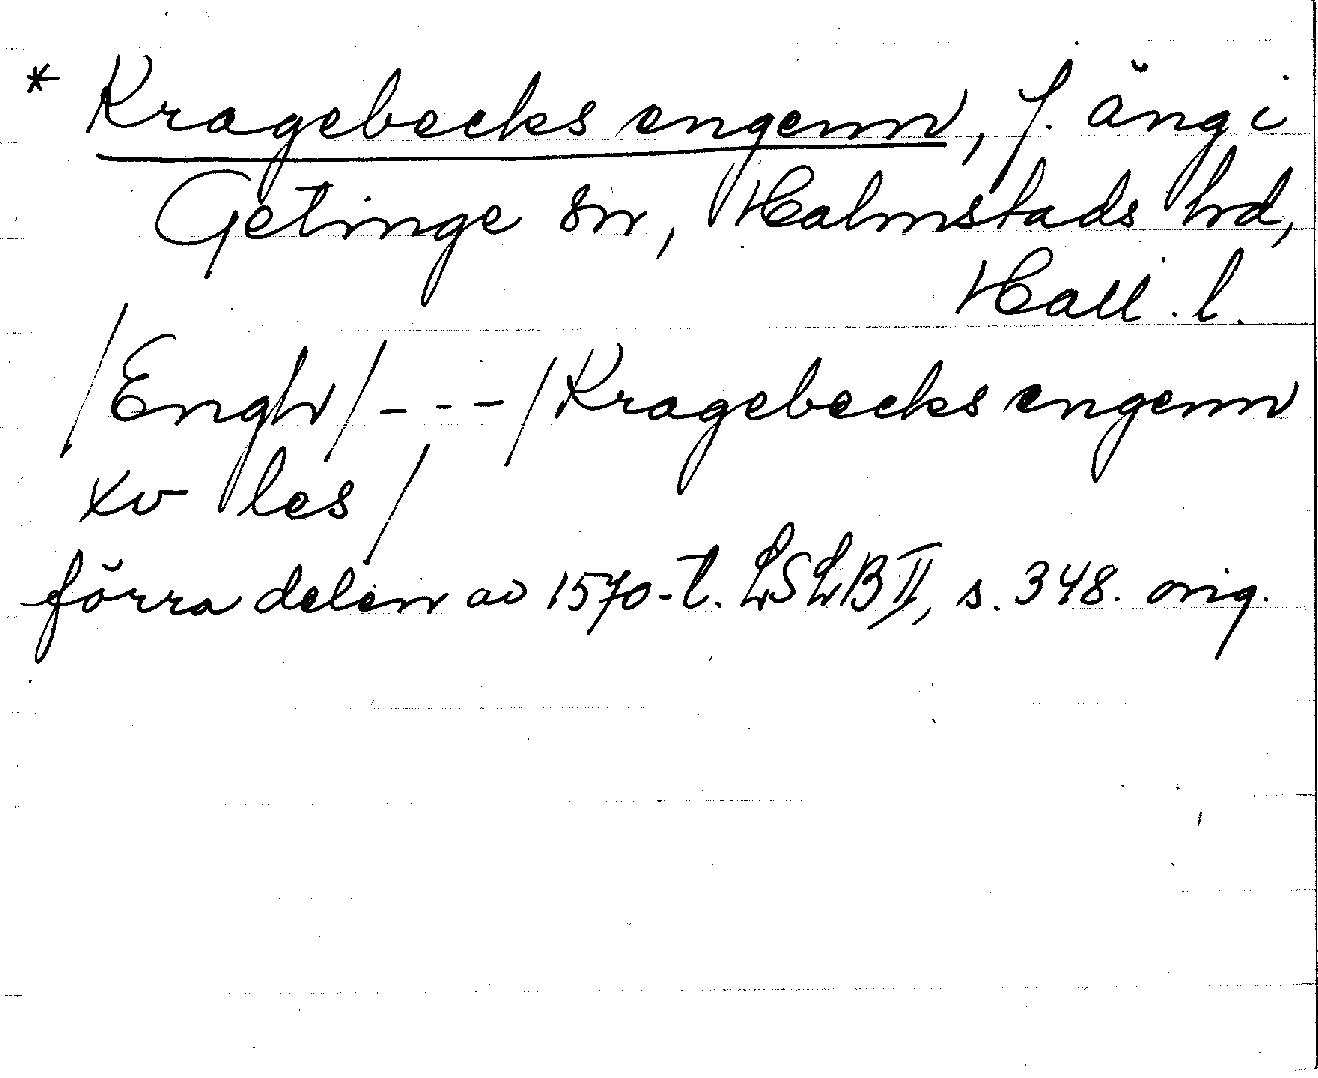 * Kragebecks engenn, f. äng i
Getinge sn, Halmstads hd,
Hall. l.
/Engh/---/Kragebecks engenn
xv les/
förra delen av 1570-t. LSLB II, s. 348. orig.